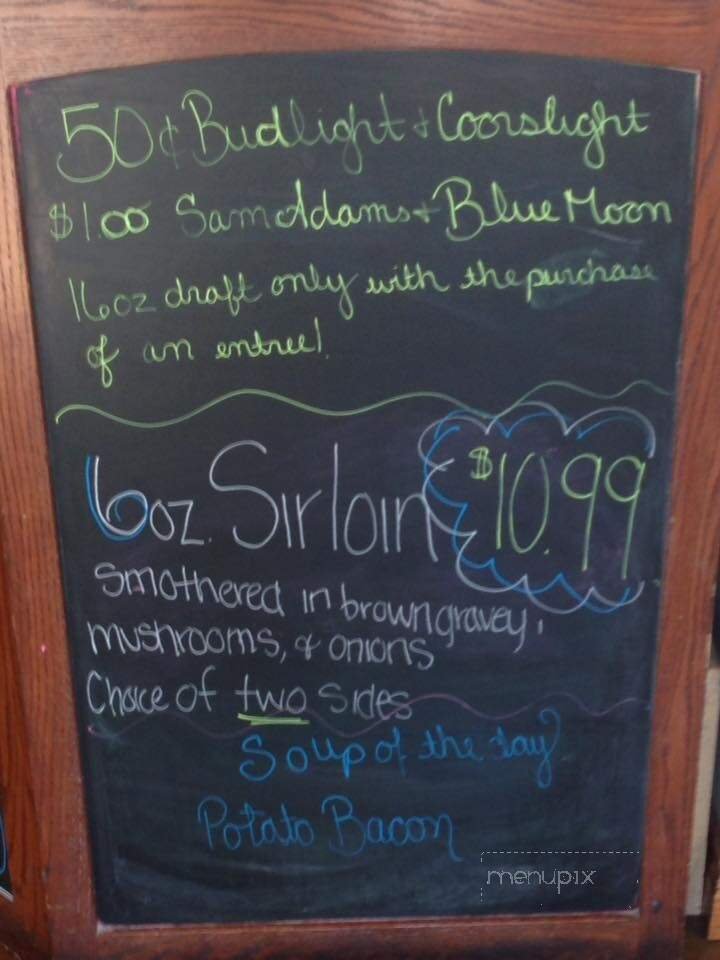 50¢ Budlight & Coorslight
$1.00 Sam Adams & Blue Moon
16oz draft only with the purchase
of an entree!
6oz. Sirloin $10.99
smothered in brown gravey,
mushrooms, & onions
Choice of two sides
Soup of the day
Potato Bacon
menupix